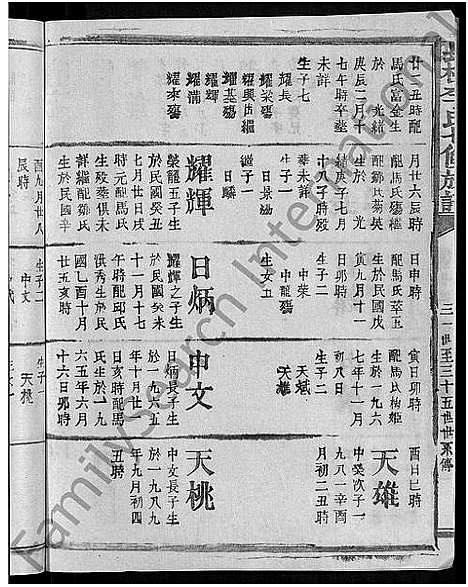 廿丑時配
馬氏富金生
於 光緒
庚辰二月十
七午時卒葬
未詳
生子七
耀長
耀榮殤
耀興出繼
耀基殤
耀輝
耀清
耀來殤
月廿六辰時
配馬氏殤繼
配鄒氏菊英
生於 光
緒庚子七月
十二子時歿
葬未詳
生子一
日景殤
繼子一
日騄
耀輝
榮龍五子生
於民國癸丑
七月廿日戌
時元配馬氏
生歿葬俱未
詳繼配鄒氏
生於民國辛
酉九月廿八
辰時
日申時
配馬氏萃五
生於民國戊
寅九月十一
日卯時
生子二
中榮
中龍殤
生女五
日炳
耀輝之子生
於民國癸未
十一月十七
午時配邱氏
洪秀生於民
國乙酉十月
廿五亥時
生子二
中文
寅日卯時
配馬氏梅姬
生於一九六
七年十一月
初八日
生子二
天斌
天雄
中文
日炳長子生
於一九六五
日亥時配馬
氏生於一九
六五年六月
十六日卯時
生子一
天桃
酉日巳時
天雄
中榮次子一
九八一辛酉
月初二丑時
天桃
中文長子生
於一九八九
年九月初四
五時
FamilySearch International